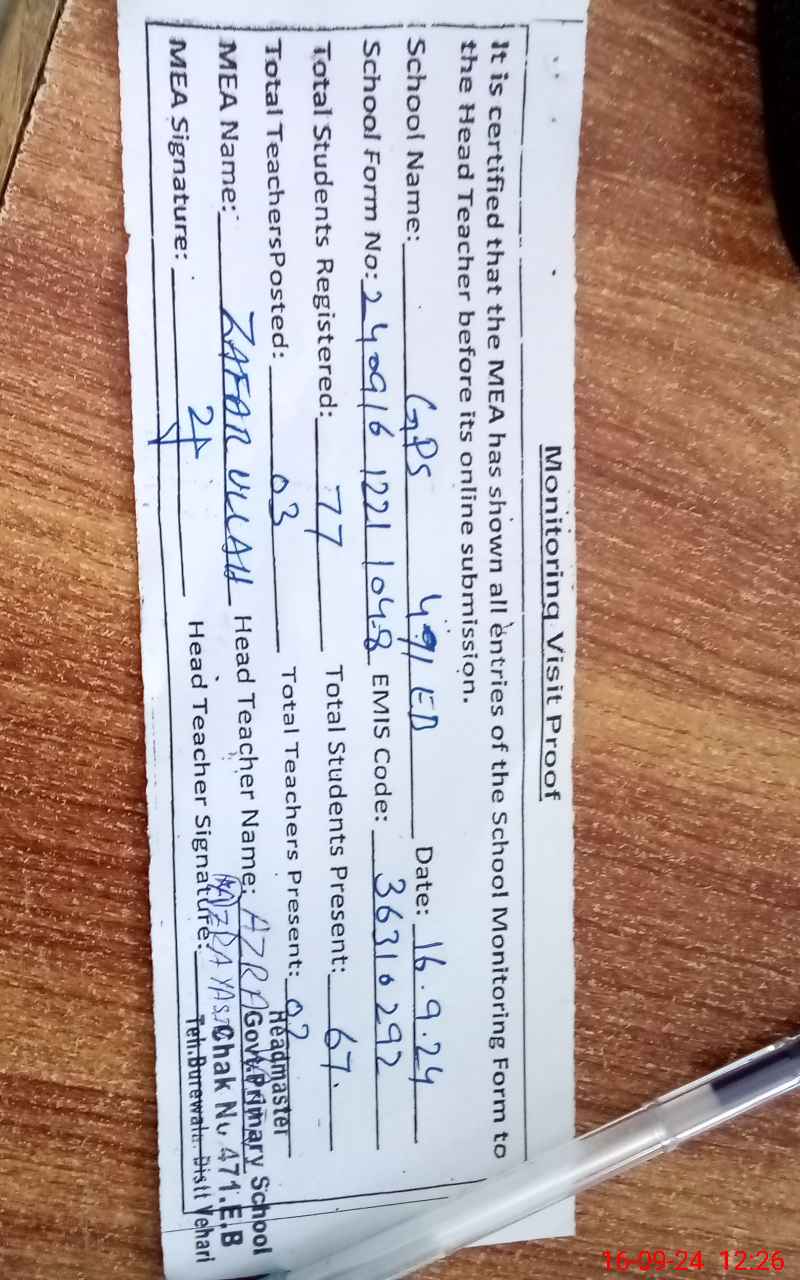 Monitoring Visit Proof
It is certified that the MEA has shown all entries of the School Monitoring Form to
the Head Teacher before its online submission.
School Name: GPS EB Date: 16.9.24
School Form No: 240916 1221 1048 EMIS Code: 36310292
Total Students Registered: 77 Total Students Present: 67.
Total TeachersPosted: 03 Total Teachers Present:
MEA Name: ZAFAR ULLAH Head Teacher Name: AZRA
MEA Signature: Head Teacher Signature: AZRA
Headmaster
Govt. Primary School
Chak No 471.E.B
Teh.Burewala. Distt Vehari
16-09-24 12:26